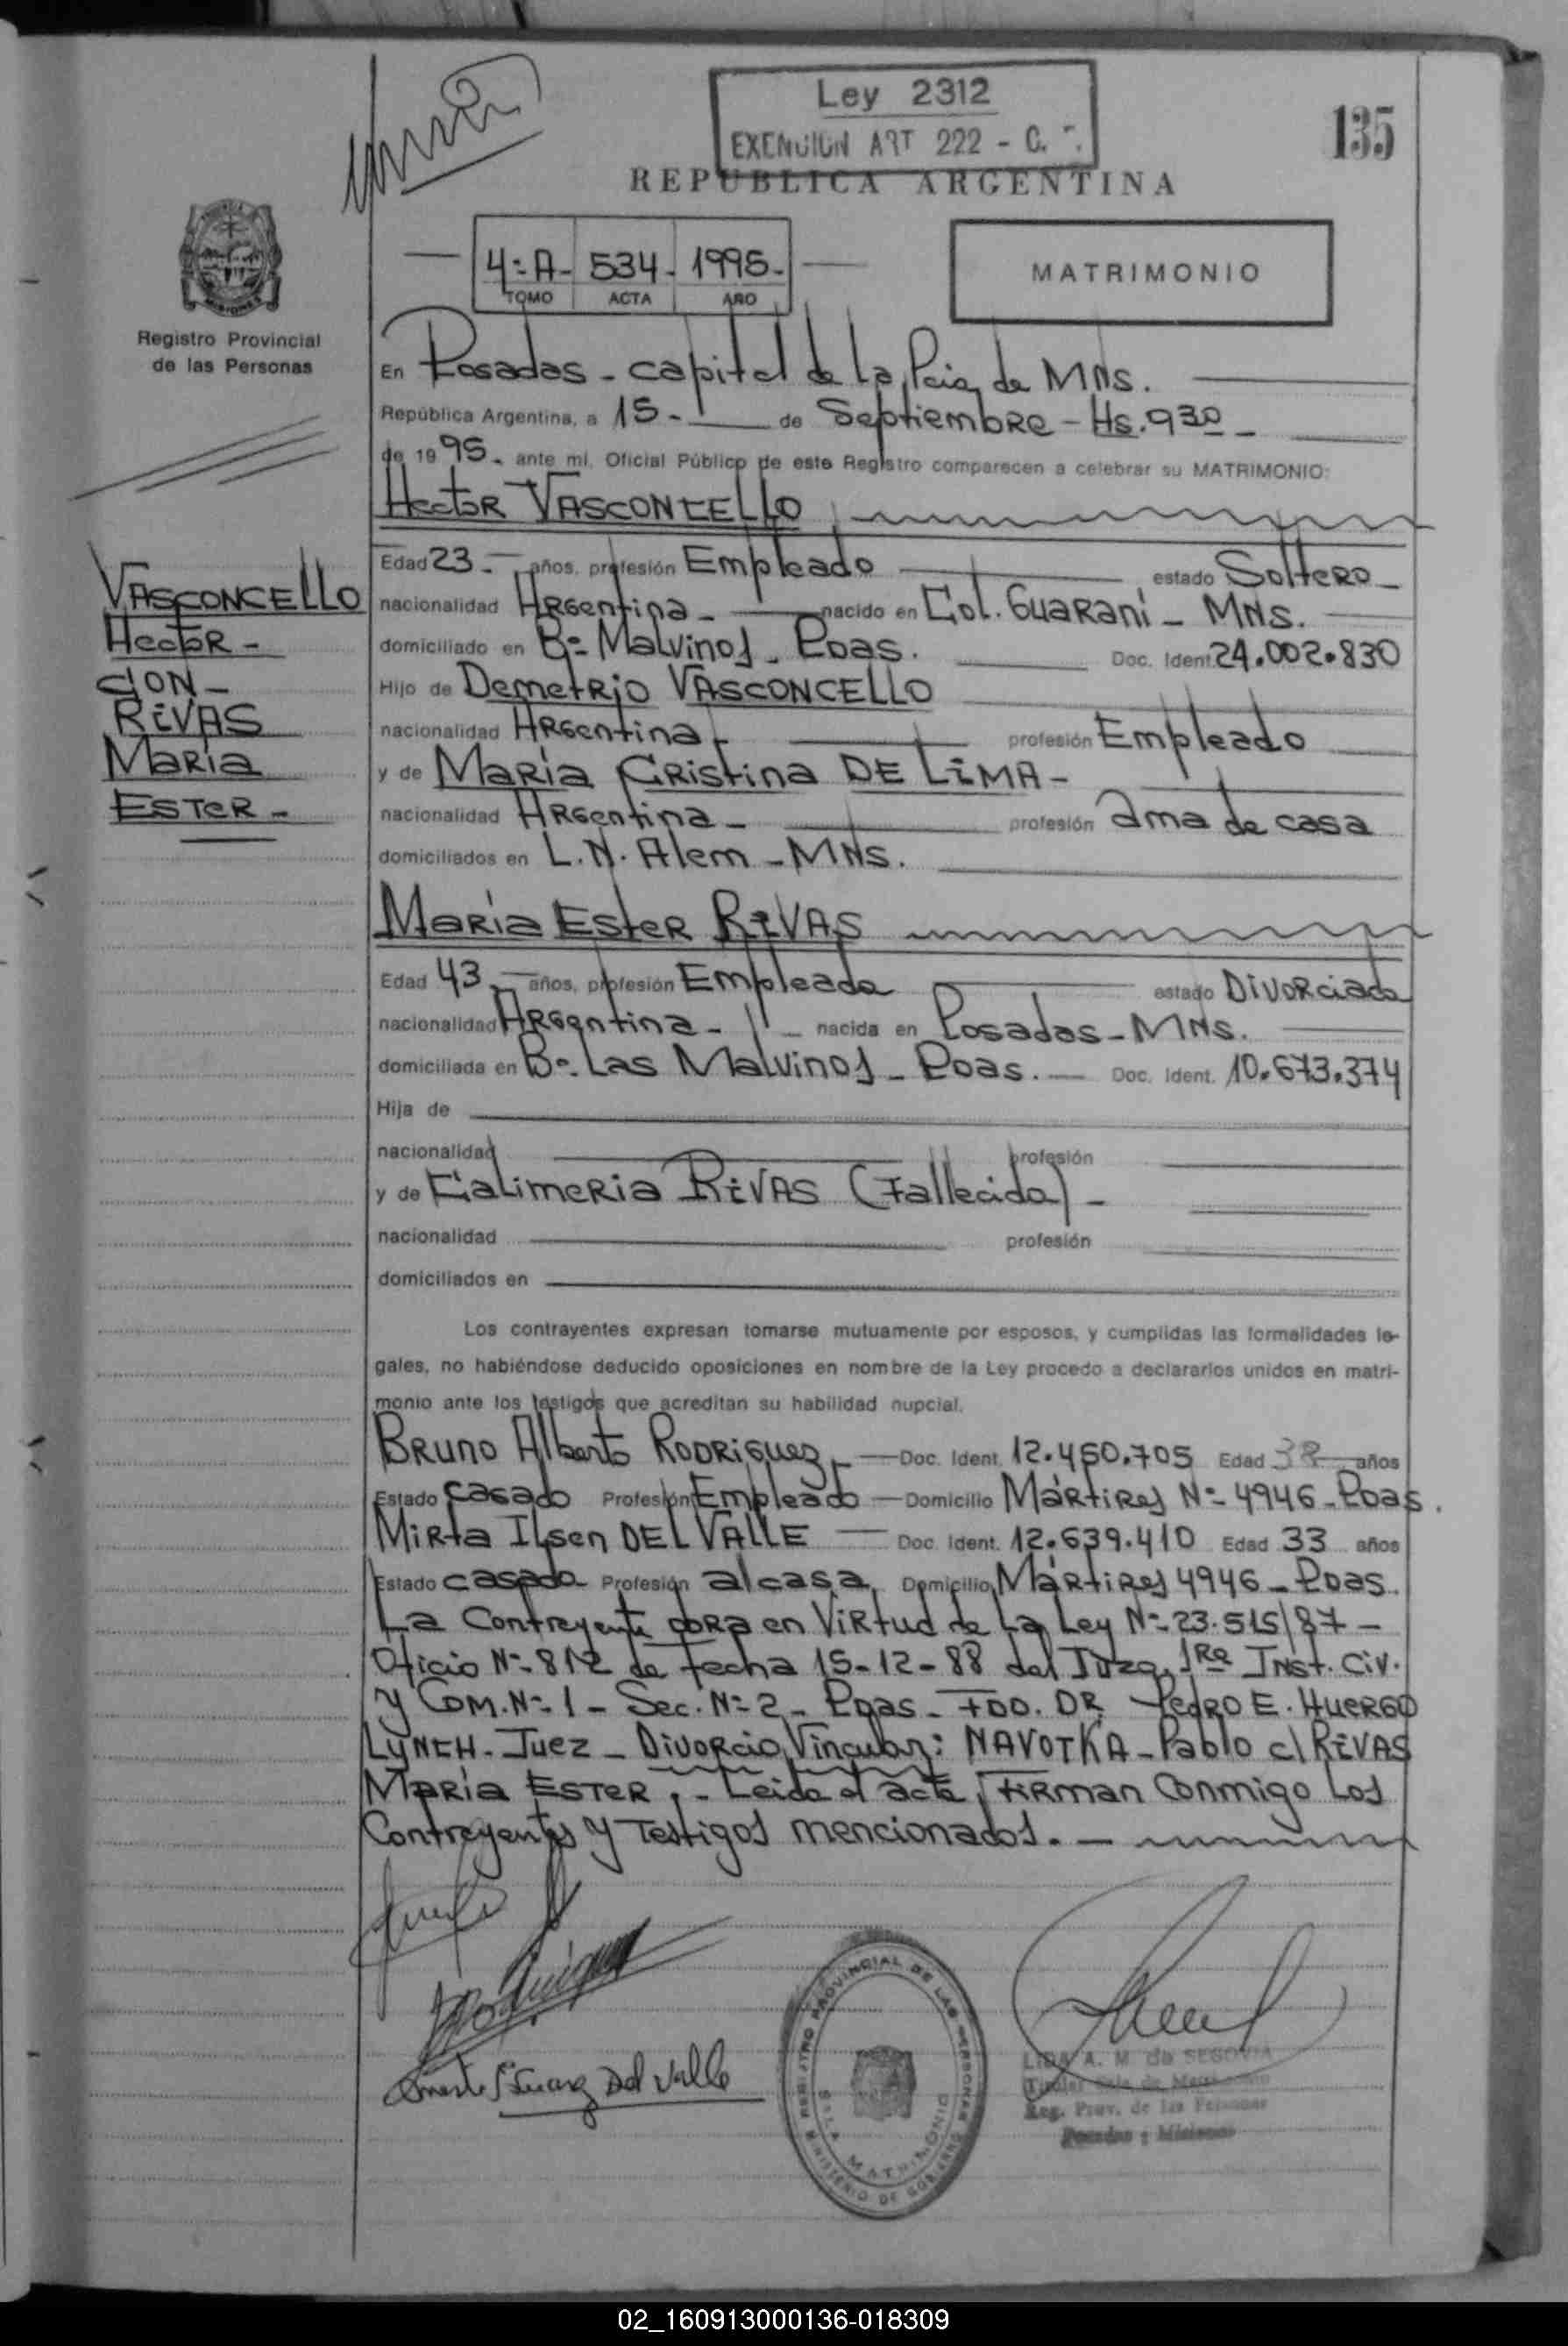 Ley 2312
EXENCION ART 222 - C.
135
REPUBLICA ARGENTINA
4º A- 534- 1995-
TOMO ACTA AÑO
MATRIMONIO
Registro Provincial
de las Personas
En Posadas - capital de la Pcia de MNS.
República Argentina, a 15- de Septiembre - Hs. 930 -
de 1995- ante mi, Oficial Público de este Registro comparecen a celebrar su MATRIMONIO:
Hector VASCONCELLO
VASCONCELLO
Hector -
CON -
RIVAS
María
ESTER -
Edad 23- años, profesión Empleado estado Soltero -
nacionalidad Argentina - nacido en Col. Guaraní - MNS.
domiciliado en Bº Malvinas - Pdas. Doc. Ident. 24.002.830
Hijo de Demetrio VASCONCELLO
nacionalidad Argentina - profesión Empleado
y de María Cristina DE LIMA -
nacionalidad Argentina - profesión ama de casa
domiciliados en L.N. Alem - MNS.
María Ester RIVAS
Edad 43- años, profesión Empleada estado Divorciada
nacionalidad Argentina - nacida en Posadas - MNS.
domiciliada en Bº Las Malvinas - Pdas. Doc. Ident. 10.673.374
Hija de
nacionalidad profesión
y de Calimeria RIVAS (Fallecida) -
nacionalidad profesión
domiciliados en
Los contrayentes expresan tomarse mutuamente por esposos, y cumplidas las formalidades le-
gales, no habiéndose deducido oposiciones en nombre de la Ley procedo a declararlos unidos en matri-
monio ante los testigos que acreditan su habilidad nupcial.
Bruno Alberto RODRIGUEZ - Doc. Ident. 12.450.705 Edad 38 años
Estado casado Profesión Empleado - Domicilio Mártires Nº 4946 - Pdas.
Mirta Ilsen DEL VALLE - Doc. Ident. 12.639.410 Edad 33 años
Estado casada Profesión a/casa Domicilio Mártires 4946 - Pdas.
La Contrayente obra en Virtud de La Ley Nº 23.515/87 -
Oficio Nº 812 de fecha 15-12-88 del Juzg. 1ra Inst. Civ.
y Com. Nº 1 - Sec. Nº 2 - Pdas - FDO. DR Pedro E. Huergo
LYNCH - Juez - Divorcio Vincular: NAVOTKA - Pablo c/ RIVAS
María ESTER, - Leida el acta, Firman Conmigo Los
Contrayentes y Testigos mencionados. -
Del Valle
REGISTRO PROVINCIAL DE LAS PERSONAS
SALA MATRIMONIO
MINISTERIO DE GOBIERNO
LIDA A. M. de SEGOVIA
Titular Sala de Matrimonio
Reg. Prov. de las Personas
Posadas - Misiones
02_160913000136-018309